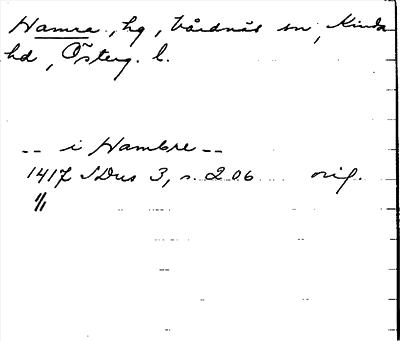 Hamra, hg, Vårdnäs sn, Kinda
hd, Österg. l.
-- i Hambre --
1417 SDns 3, s. 206 orig.
1/1